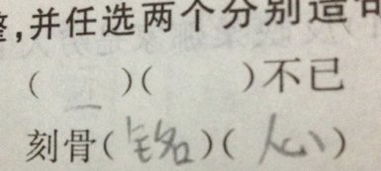 ,并任选两个分别造句
( )( )不已
刻骨(铭)(心)